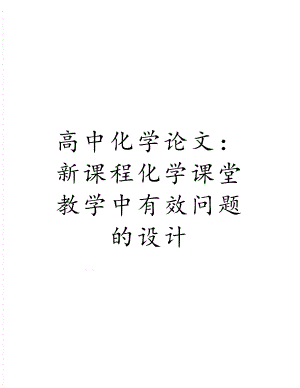 高中化学论文：
新课程化学课堂
教学中有效问题
的设计